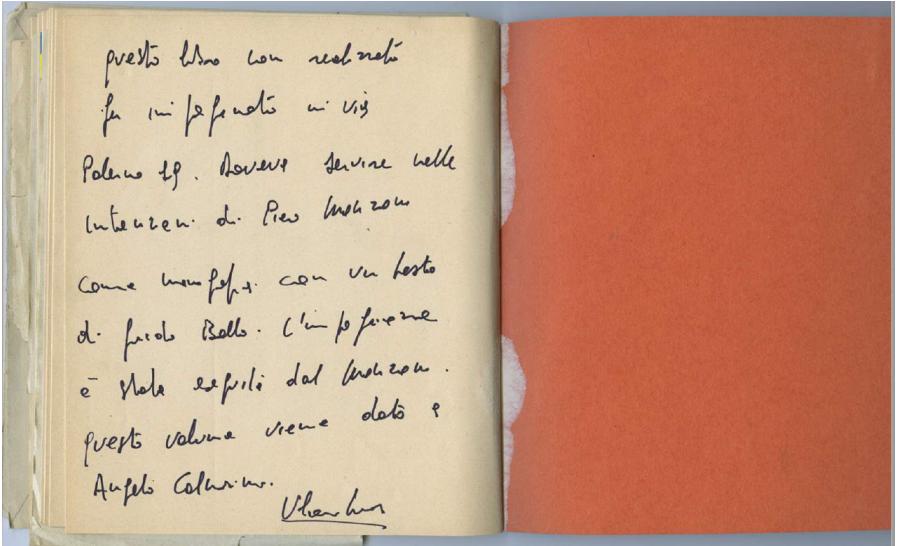 questo libro non realizzato
fu impaginato in via
Palermo 19. Doveva servire nelle
intenzioni di Piero Manzoni
come monografia con un testo
di Guido Ballo. L'impaginazione
è stata eseguita dal Manzoni.
questo volume viene dato a
Angelo Calmarini.